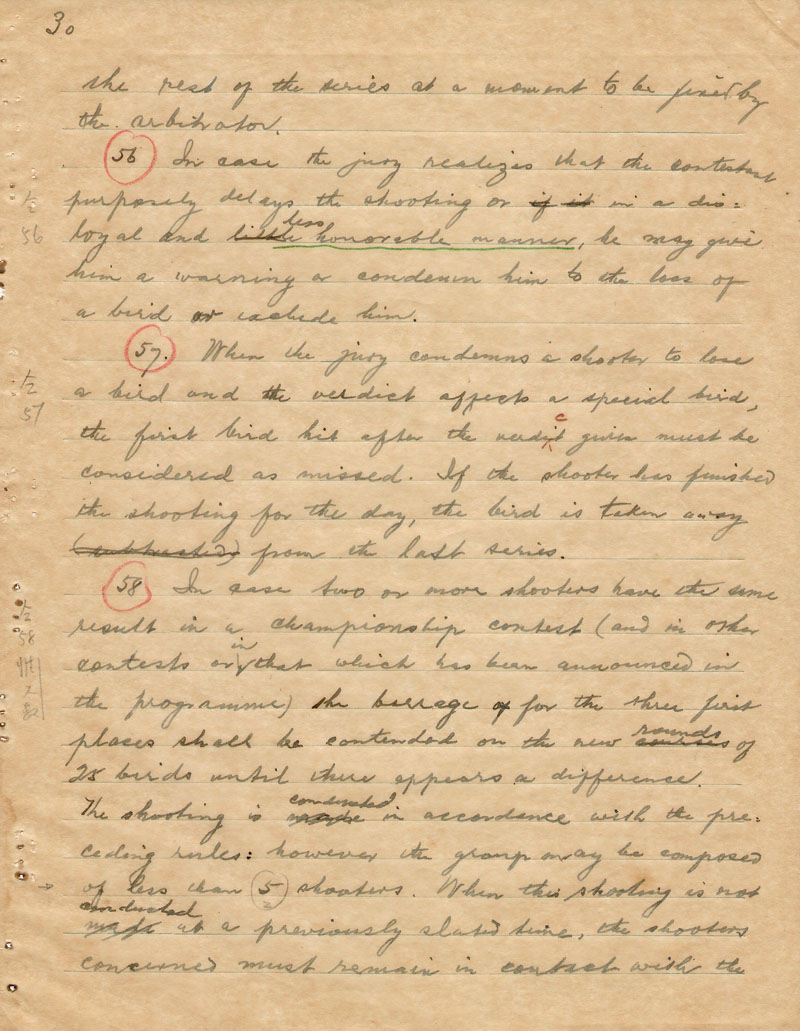 30
the rest of the series at a moment to be fixed by
the arbitrator.
56 In case the jury realizes that the contestant
purposely delays the shooting or if it in a dis:
loyal and little less honorable manner, he may give
him a warning or condemn him to the loss of
a bird or exclude him.
1/2
56
57. When the jury condemns a shooter to lose
a bird and the verdict affects a special bird,
the first bird hit after the verdict given must be
considered as missed. If the shooter has finished
the shooting for the day, the bird is taken away
(subtracted) from the last series.
1/2
57
58 In case two or more shooters have the same
result in a championship contest (and in other
contests or in that which has been announced in
the programme) the barrage of for the three first
places shall be contended on the new courses rounds of
25 birds until there appears a difference.
The shooting is made conducted in accordance with the pre:
ceding rules: however the group may be composed
of less than 5 shooters. When this shooting is not
made conducted at a previously slated time, the shooters
concerned must remain in contact with the
1/2
58